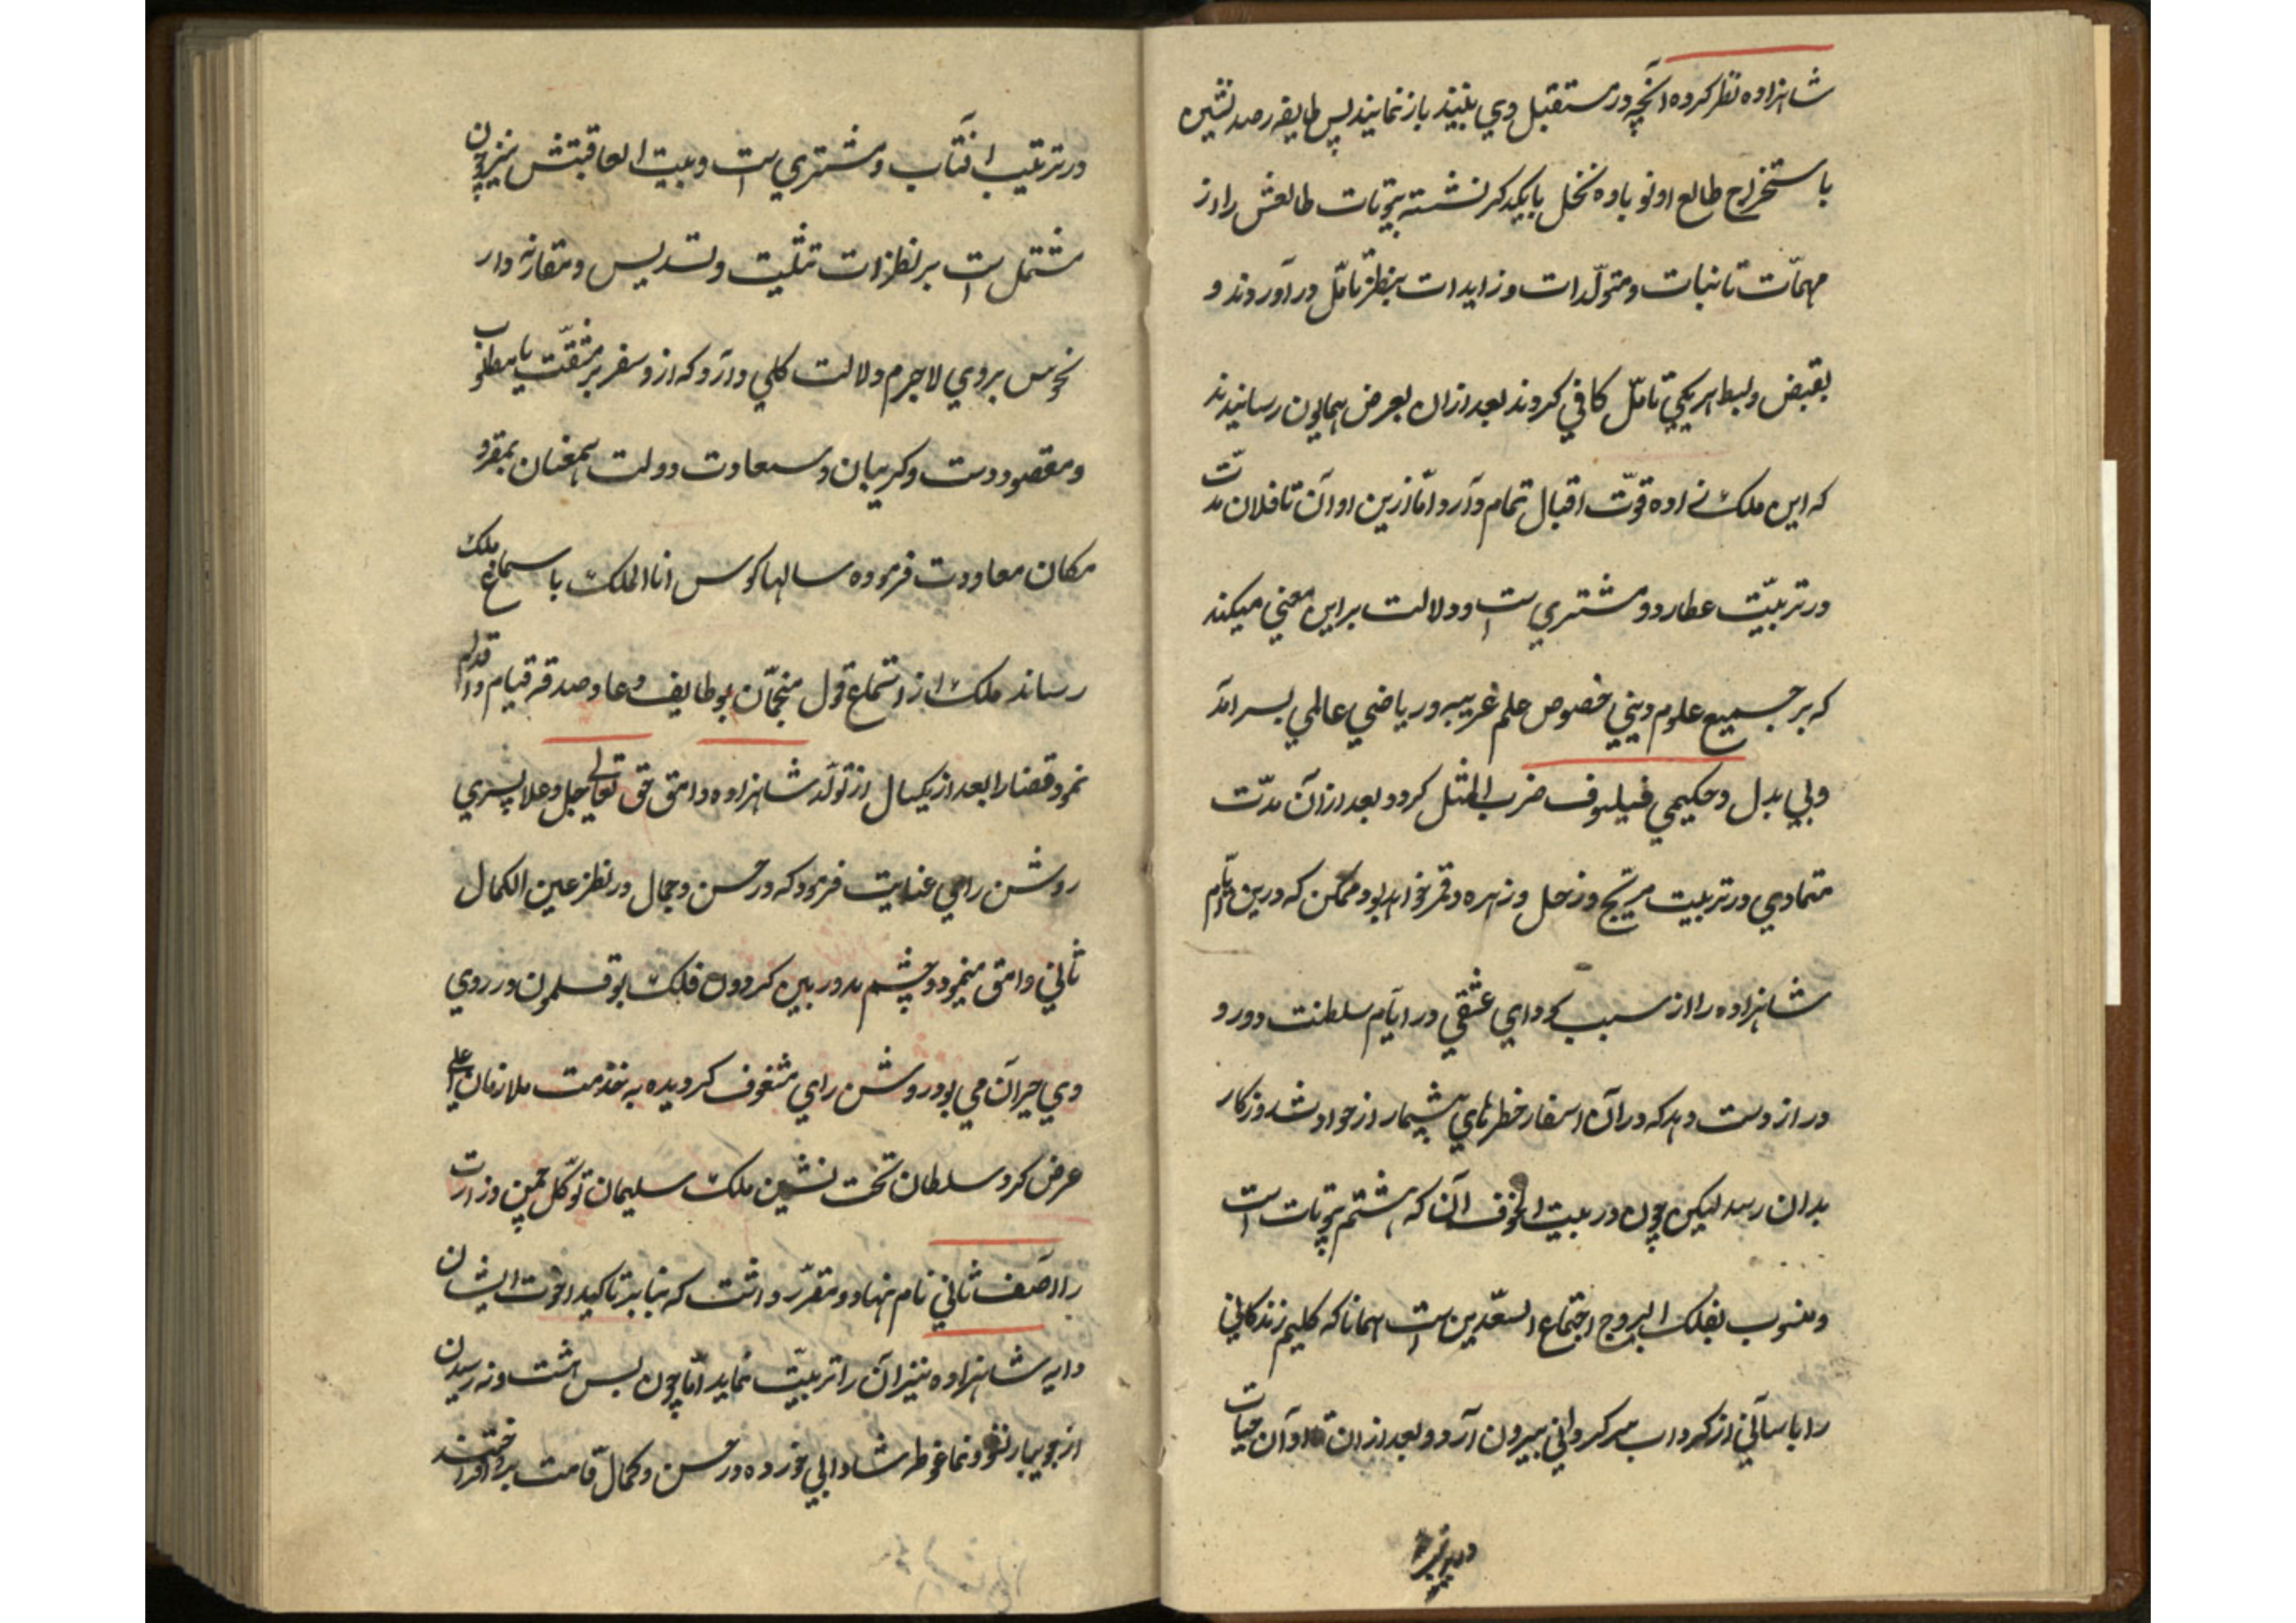 شاهزاده نظر کرده آنچه در مستقبل وي بینند باز نمایند پس طایفه رصد نشین
باستخراج طالع او نوباوه نخل با یکدیکر نشسته بیوتات طالعش را از
مهمات تا نبات و متولدات و زایدات بنظر تامّل در آوردند و
بقبض و بسط هر یکي تامّل کافي کردند بعد ازان بعرض همایون رسانیدند
که این ملک زاده قوّت اقبال تمام دارد امّا ازین اوان تا فلان مدّت
در تربیّت عطارد و مشتري است و دلالت بر این معني میکند
که بر جمیع علوم دیني خصوص علم غریبه و ریاضي عالمي بسر آمد
و بي بدل و حکیمي فیلسوف ضرب المثل کردد بعد ازآن مدّت
متمادي در تربیت مریخ و زحل و زهره و قمر خواهد بود ممکن که درین ایّام
شاهزاده را از سبب سوداي عشقي در ایّام سلطنت دور و
دراز دست دهد که درآن اسفار خطرهاي بیشمار از حوادث روزکار
بدان رسد لیکن چون در بیت الخوف آن که هشتم بیوتات است
و منسوب بفلک البروج اجتماع السعدین است همانا که کلیم زندکاني
را باساني از کرداب سرکرداني بیرون آرد و بعد ازان تا اوان حیات
در ترتیب
در ترتیب افتاب و مشتري است و بیت العاقبتش نیز چون
مشتمل است بر نظرات تثلیت و تسدیس و مقارنه دار
نحوس بروي لاجرم دلالت کلي دارد که ازو سفر پر مشقّت با مطلوب
و مقصود دست و کریبان و سعادت دولت همعنان بمقرّ
مکان معاودت فرموده سالها کوس انا الملک با سماع ملک
رساند ملک از استماع قول منجمّان بوظایف دعا و صدقه قیام و اقدام
نمود قضا را بعد از یکسال از تولّد شاهزاده وامق حق تعالي جل و علا پسري
روشن راي عنایت فرمود که در حسن و جمال در نظر عین الکمال
ثاني وامق مینمود و چشم بدور بین کردون فلک بوقلمون در روي
وي حیران مي بود روشن راي مشغوف کردیده به خدمت ملازمان اعلي
عرض کرد سلطان تخت نشین ملک سلیمان توکّل چمن وزارت
را اصف ثاني نام نهاد و مقرّر داشت که بنابر تاکید اخوت ایشان
دایه شاهزاده نیز آن را تربیّت نماید امّا چون بسن هشت و نه رسیدن
از جویبار نشو و نما غوطه شادابي خورده در حسن و کمال قامت بر افراختند